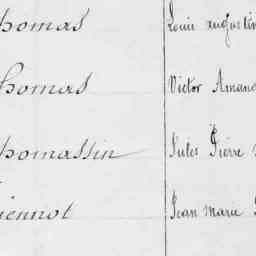 homas Louis augustin
homas Victor Amand
homassin Jules Pierre
iennot Jean marie